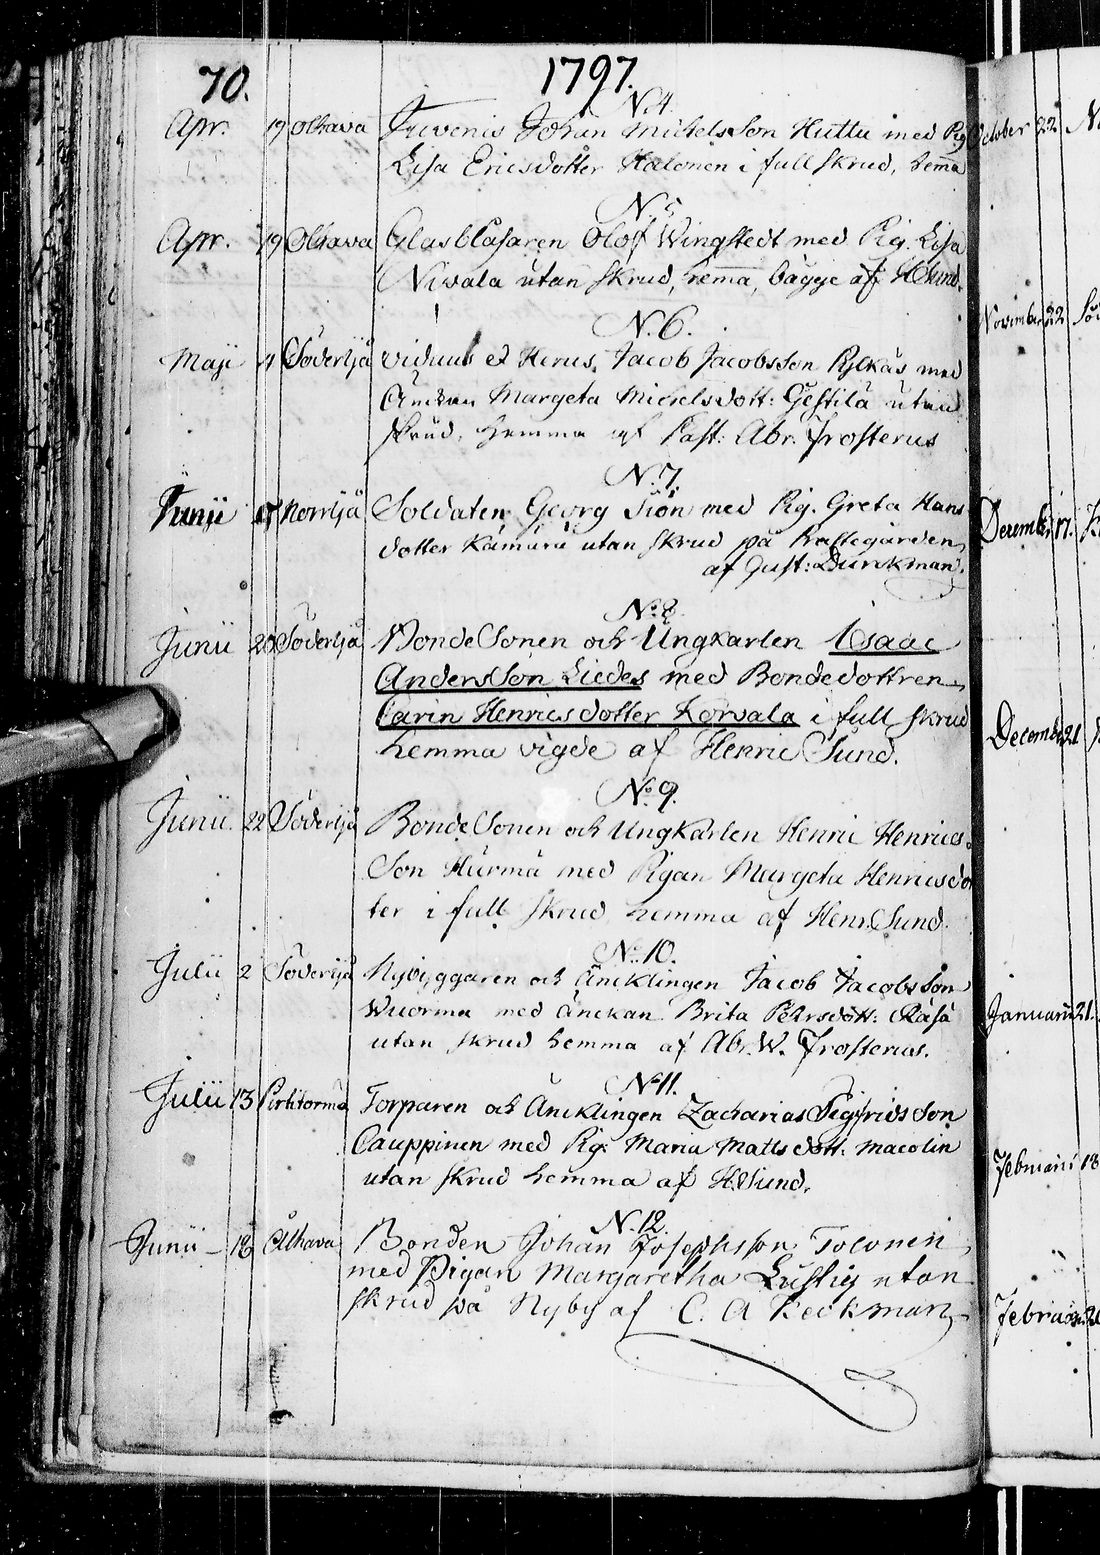 70.
1797.
N. 4.
Apr. 19 Olhava Juvenis Johan Michelsson Huttu med Pig
Lisa Ericsdotter Halonen i full skrud, hemma
N. 5
Apr. 19 Olhava Glasblåsaren Olof Wingstedt med Pig. Lisa
Niwala utan skrud, hemma, bägge af H Sund.
N. 6.
Maji 4 Söderijå Viduus et Herus. Jacob Jacobsson med
Änckan Margeta Michelsdott: utan
skrud, hemma af Past: Abr. Frosterus
N. 7.
Junii Norrijå Soldaten Georg Siön med Pig. Greta Hans
dotter Kämärä utan skrud på Prästegården
af Gust: Durckman.
No 8.
Junii 20 Söderijå BondeSonen och Ungkarlen Isaac
AndersSon Liedes med Bondedottren
Carin Henricsdotter Korvala i full skrud
hemma vigde af Henric Sund.
No 9.
Junii 22 Söderijå BondeSonen och Ungkarlen Henric Henrics
Son Hurmä med Pigan Margeta Henricsdo
ter i full skrud hemma af Henr. Sund.
No 10.
Julii 2 Söderijå Nybyggaren och Äncklingen Jacob Jacobsson
Wuorma med Änckan Brita Pehrsdott: Räsä
utan skrud hemma af Abr. W. Frosterus.
No 11.
Julii 13 Pirttitörmä Torparen och Äncklingen Zacharias Sigfridsson
Cauppinen med Pig: Maria Mattsdott: Macolin
utan skrud hemma af H. Sund.
N. 12.
Junii 18 Olhava Bonden Johan Josephsson Tolonen
med Pigan Margaretha Lustig utan
skrud på Nyby af C. A Keckman
October 22
November 22
December 17.
December 21
Januarii 21.
Februarii 18